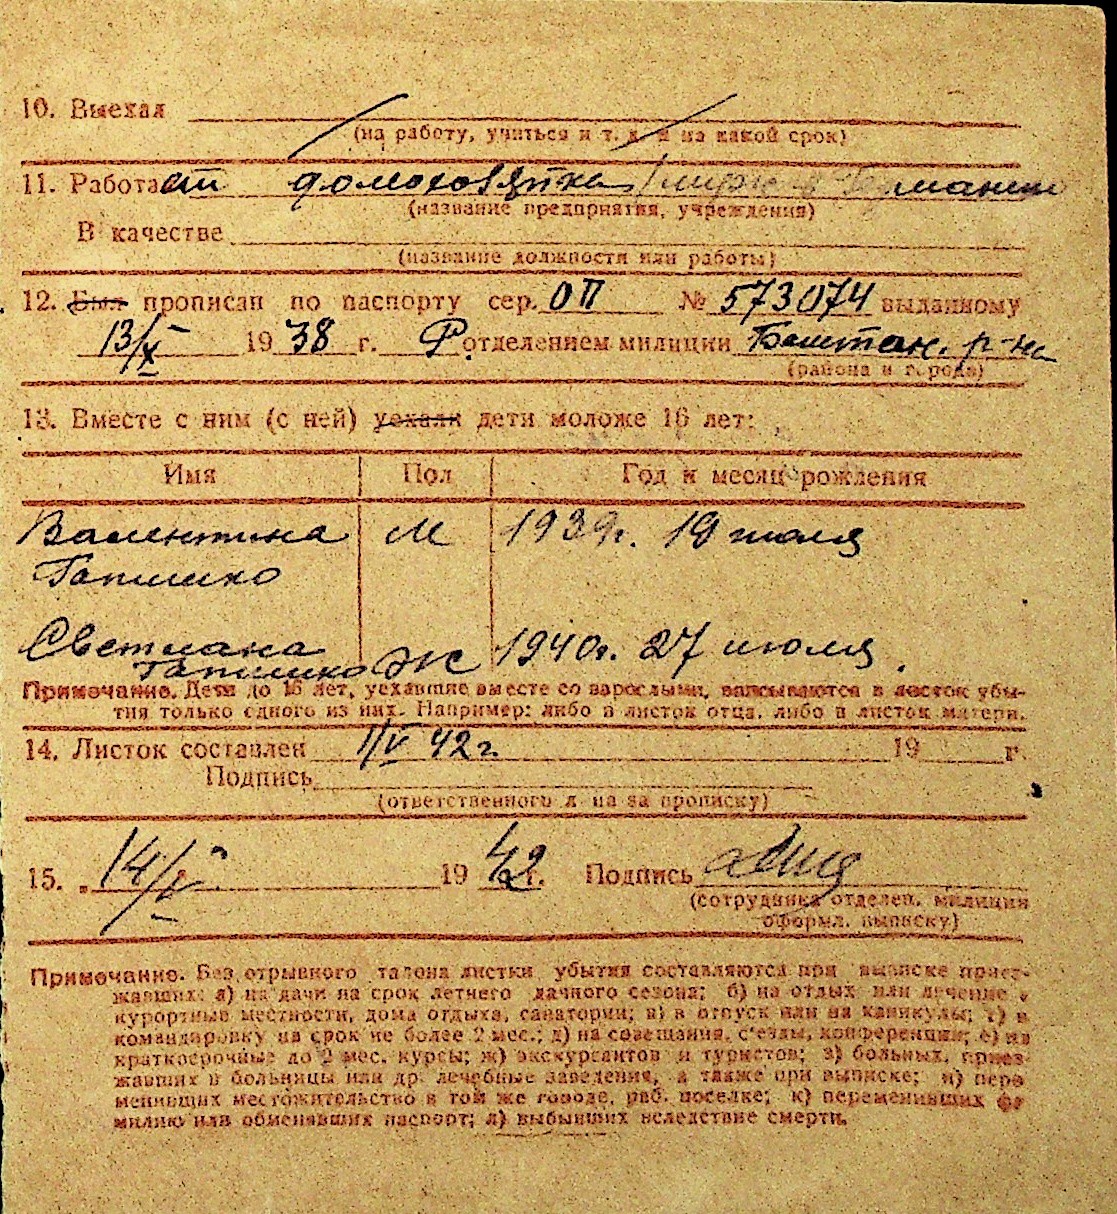 10. Выехал
(на работу, учиться и т. д. и на какой срок)
11. Работает домохозяйка
(название предприятия, учреждения)
В качестве
(название должности или работы)
12. Был прописан по паспорту сер. ОП № 573074 выданному
13/X 1938 г. Р отделением милиции Баштан. р-на
(района и города)
13. Вместе с ним (с ней) уехали дети моложе 16 лет:
Имя Пол Год и месяц рождения
Валентина М 1939г. 19 июля
Гапишко
Светлана
Гапишко Ж 1940г. 27 июля
Примечание. Дети до 16 лет, уехавшие вместе со взрослыми, вписываются в листок убы-
тия только одного из них. Например: либо в листок отца, либо в листок матери.
14. Листок составлен 1/V 42 г. 19 г.
Подпись
(ответственного лица за прописку)
15. „ 14/V 1942 г. Подпись
(сотрудника отделен. милиции
оформл. выписку)
Примечание. Без отрывного талона листки убытия составляются при выписке приез-
жавших: а) на дачи на срок летнего дачного сезона; б) на отдых или лечение в
курортные местности, дома отдыха, санатории; в) в отпуск или на каникулы; г) в
командировку на срок не более 2 мес.; д) на совещания, с'езды, конференции; е) на
краткосрочные до 2 мес. курсы; ж) экскурсантов и туристов; з) больных, приез-
жавших в больницы или др. лечебные заведения, а также при выписке; и) пере
менивших местожительство в том же городе, раб. поселке; к) переменивших фа
милию или обменявших паспорт; л) выбывших вследствие смерти.